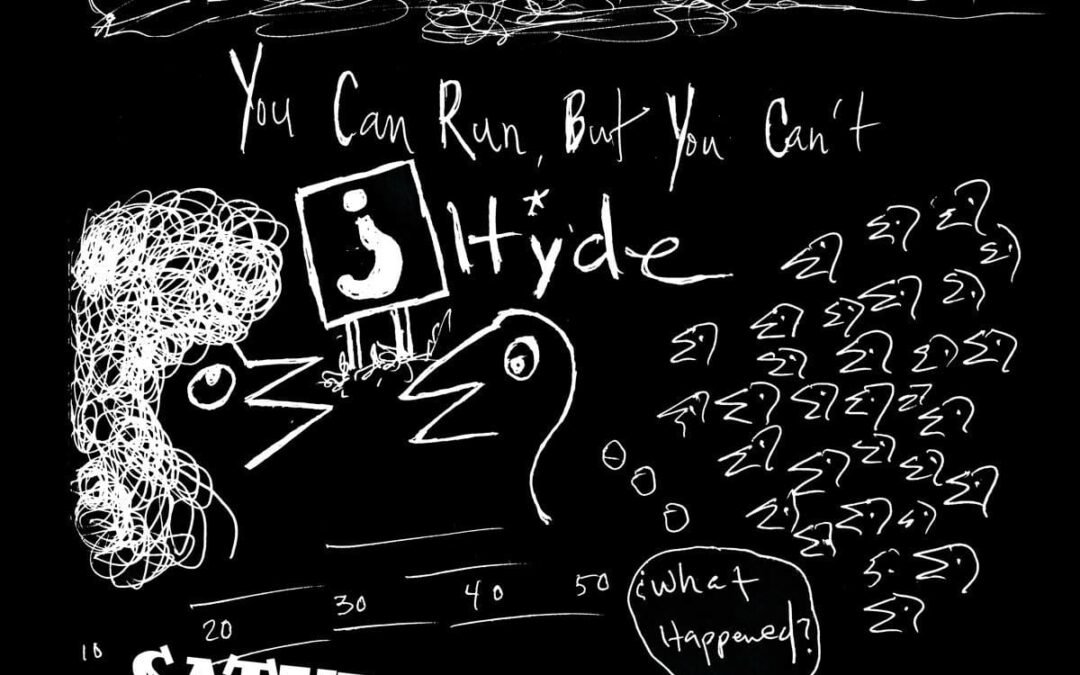 You Can Run, But You Can't
j Hyde
50
40
30
20
10
¿What
Happened?